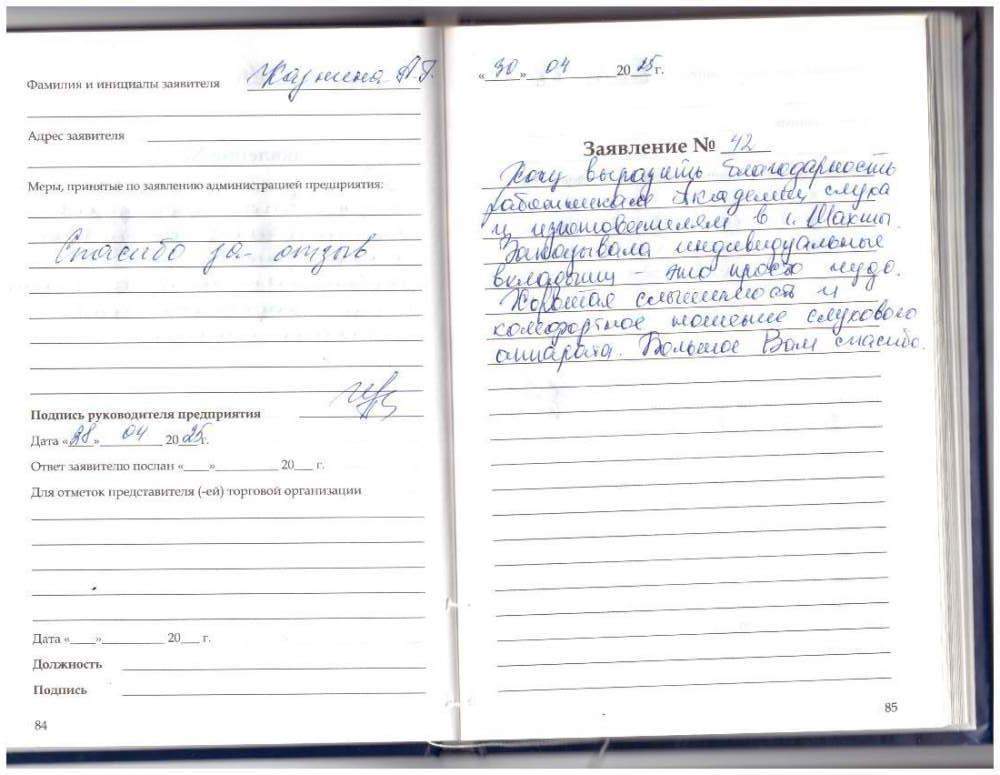 Фамилия и инициалы заявителя
Адрес заявителя
Меры, принятые по заявлению администрацией предприятия:
Спасибо за отзыв.
Подпись руководителя предприятия
Дата «28» 04 2025г.
Ответ заявителю послан «___»__________ 20___ г.
Для отметок представителя (-ей) торговой организации
Дата «____»__________ 20___ г.
Должность
Подпись
84
«30» 04 2025г.
Заявление № 42
Хочу выразить благодарность
работникам Академии слуха
и изготовителям в г. Шахты.
Заказывала индивидуальные
вкладыши – это просто чудо.
Хорошая слышимость и
комфортное ношение слухового
аппарата. Большое Вам спасибо.
85